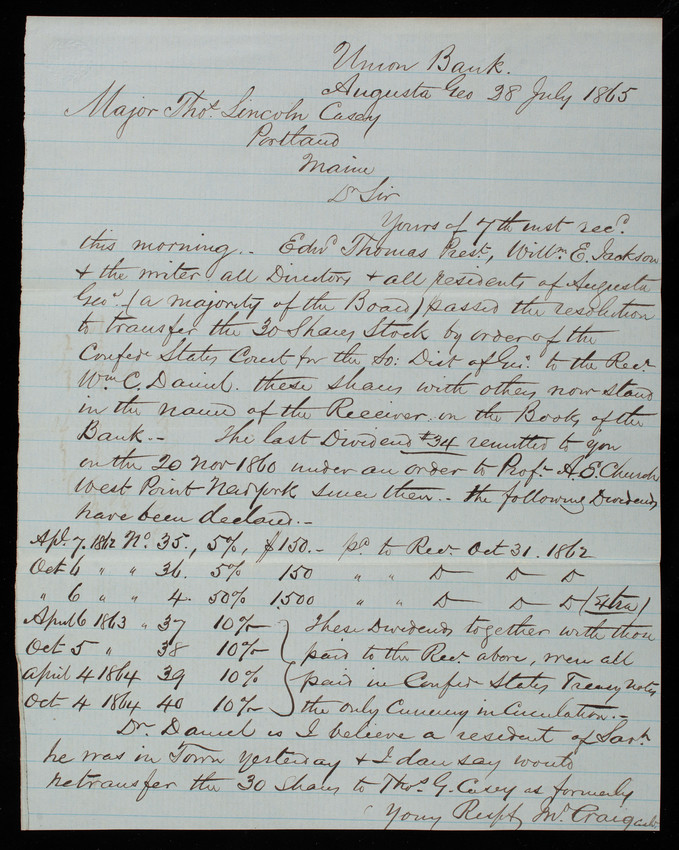 Union Bank.
Augusta Geo 28 July 1865
Major Thos. Lincoln Casey
Portland
Maine
Dr Sir
Yours of 7th inst recd.
this morning.. Edwd Thomas Prest., Willm E. Jackson
& the writer all Directors & all residents of Augusta
Geoa. (a majority of the Board) passed the resolution
to transfer the 30 Shares Stock by order of the
Confede States Court for the So: Dist of Ga. to the Recr.
Wm C. Daniel. these shares with others now stand
in the name of the Receiver on the Books of the
Bank.- The last Dividend $34 remitted to you
on the 20 Nov 1860 under an order to Profr A. E. Church
West Point New York since then.- the following Dividends
have been declared.-
Apl. 7. 1862 No. 35., 5%, $150.- pd. to Recr. Oct 31. 1862
Oct 6 " " 36. 5% 150 " " Do Do Do
" 6 " " 4. 50% 1500 " " Do Do Do (Extra)
April 6 1863 " 37 10%- These Dividends together with those
Oct 5 " 38 10%- paid to the Recr. above, were all
April 4 1864 39 10% paid in Confed States Treasy notes
Oct 4 1864 40 10%- the only Currency in Circulation.-
Dr. Daniel is I believe a resident of Savh.
he was in Town yesterday & I dare say would
retransfer the 30 Shares to Thos. G. Casey as formerly
Yours Respfy Jno. Craig cashr